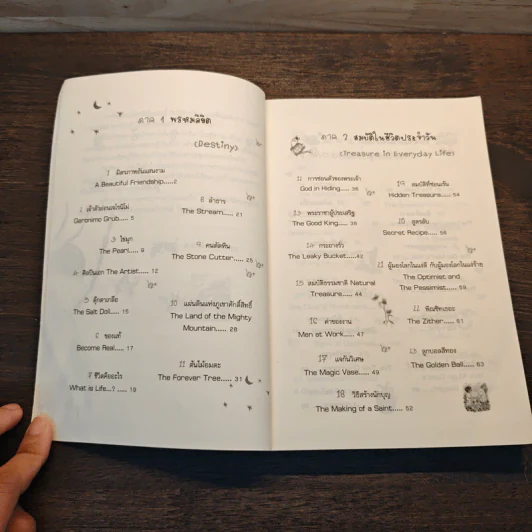 ภาค 1 พรหมลิขิต
(Destiny)
1 มิตรภาพอันแสนงาม
A Beautiful Friendship.....2
2 เจ้าตัวอ่อนเจโรนิโม
Geronimo Grub..... 5
3 ไข่มุก
The Pearl..... 9
4 ศิลปินเอก The Artist..... 12
5 ตุ๊กตาเกลือ
The Salt Doll..... 15
6 ของแท้
Become Real..... 17
7 ชีวิตคืออะไร
What is Life...? ..... 19
8 ลำธาร
The Stream..... 21
9 คนตัดหิน
The Stone Cutter..... 25
10 แผ่นดินแห่งภูเขาศักดิ์สิทธิ์
The Land of the Mighty
Mountain..... 29
11 ต้นไม้อมตะ
The Forever Tree..... 31
ภาค 2 สมบัติในชีวิตประจำวัน
(Treasure in Everyday Life)
การซ่อนตัวของพระเจ้า
God in Hiding..... 36
13 พระราชาผู้ประเสริฐ
The Good King..... 38
14 กระถางรั่ว
The Leaky Bucket.....42
15 สมบัติธรรมชาติ Natural
Treasure..... 44
16 ค่าของงาน
Men at Work..... 47
17 แจกันวิเศษ
The Magic Vase..... 49
18 วิธีสร้างนักบุญ
The Making of a Saint..... 52
19 สมบัติที่ซ่อนเร้น
Hidden Treasure..... 54
สูตรลับ
Secret Recipe..... 56
ผู้มองโลกในแง่ดี กับผู้มองโลกในแง่ร้าย
The Optimist and
The Pessimist..... 59
พิณซิทเธอร์
The Zither..... 61
ลูกบอลสีทอง
The Golden Ball..... 63